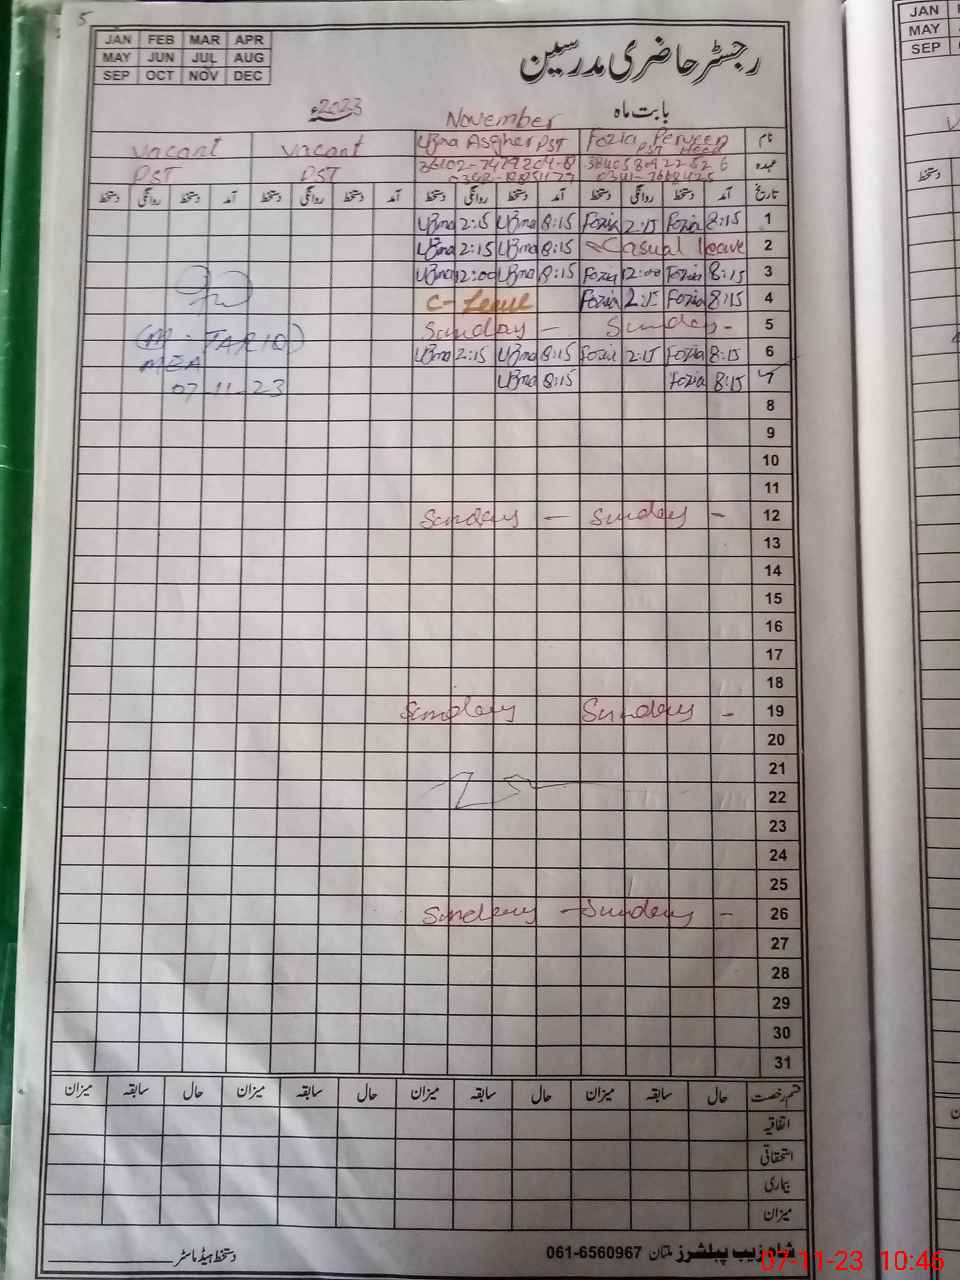 5
JAN FEB MAR APR
MAY JUN JUL AUG
SEP OCT NOV DEC
رجسٹر حاضری مدرسین
بابت ماہ November 2023ء
نام Fozia Perveen PST Head Uzma Asgher PST vacant vacant
عہدہ PST PST
تاریخ آمد دستخط روانگی دستخط آمد دستخط روانگی دستخط آمد دستخط روانگی دستخط آمد دستخط روانگی دستخط
Uzma 2:15 Uzma 8:15 Fozia 2:15 Fozia 8:15 1
Uzma 2:15 Uzma 8:15 Casual leave 2
Uzma 12:00 Uzma 8:15 Fozia 12:00 Fozia 8:15 3
C- Leave Fozia 2:15 Fozia 8:15 4
Sunday - Sunday - 5
(M. TARIQ) Uzma 2:15 Uzma 8:15 Fozia 2:15 Fozia 8:15 6
MEA
07-11-23 Uzma 8:15 Fozia 8:15 7
8
9
10
11
Sunday - Sunday - 12
13
14
15
16
17
18
Sunday Sunday - 19
20
21
22
23
24
25
Sunday - Sunday - 26
27
28
29
30
31
قسم رخصت حال سابقہ میزان حال سابقہ میزان حال سابقہ میزان حال سابقہ میزان
اتفاقیہ
استحقاقی
بیماری
میزان
شاہ زیب پبلشرز ملتان 061-6560967 دستخط ہیڈ ماسٹر
07-11-23 10:46
JAN
MAY
SEP
دستخط